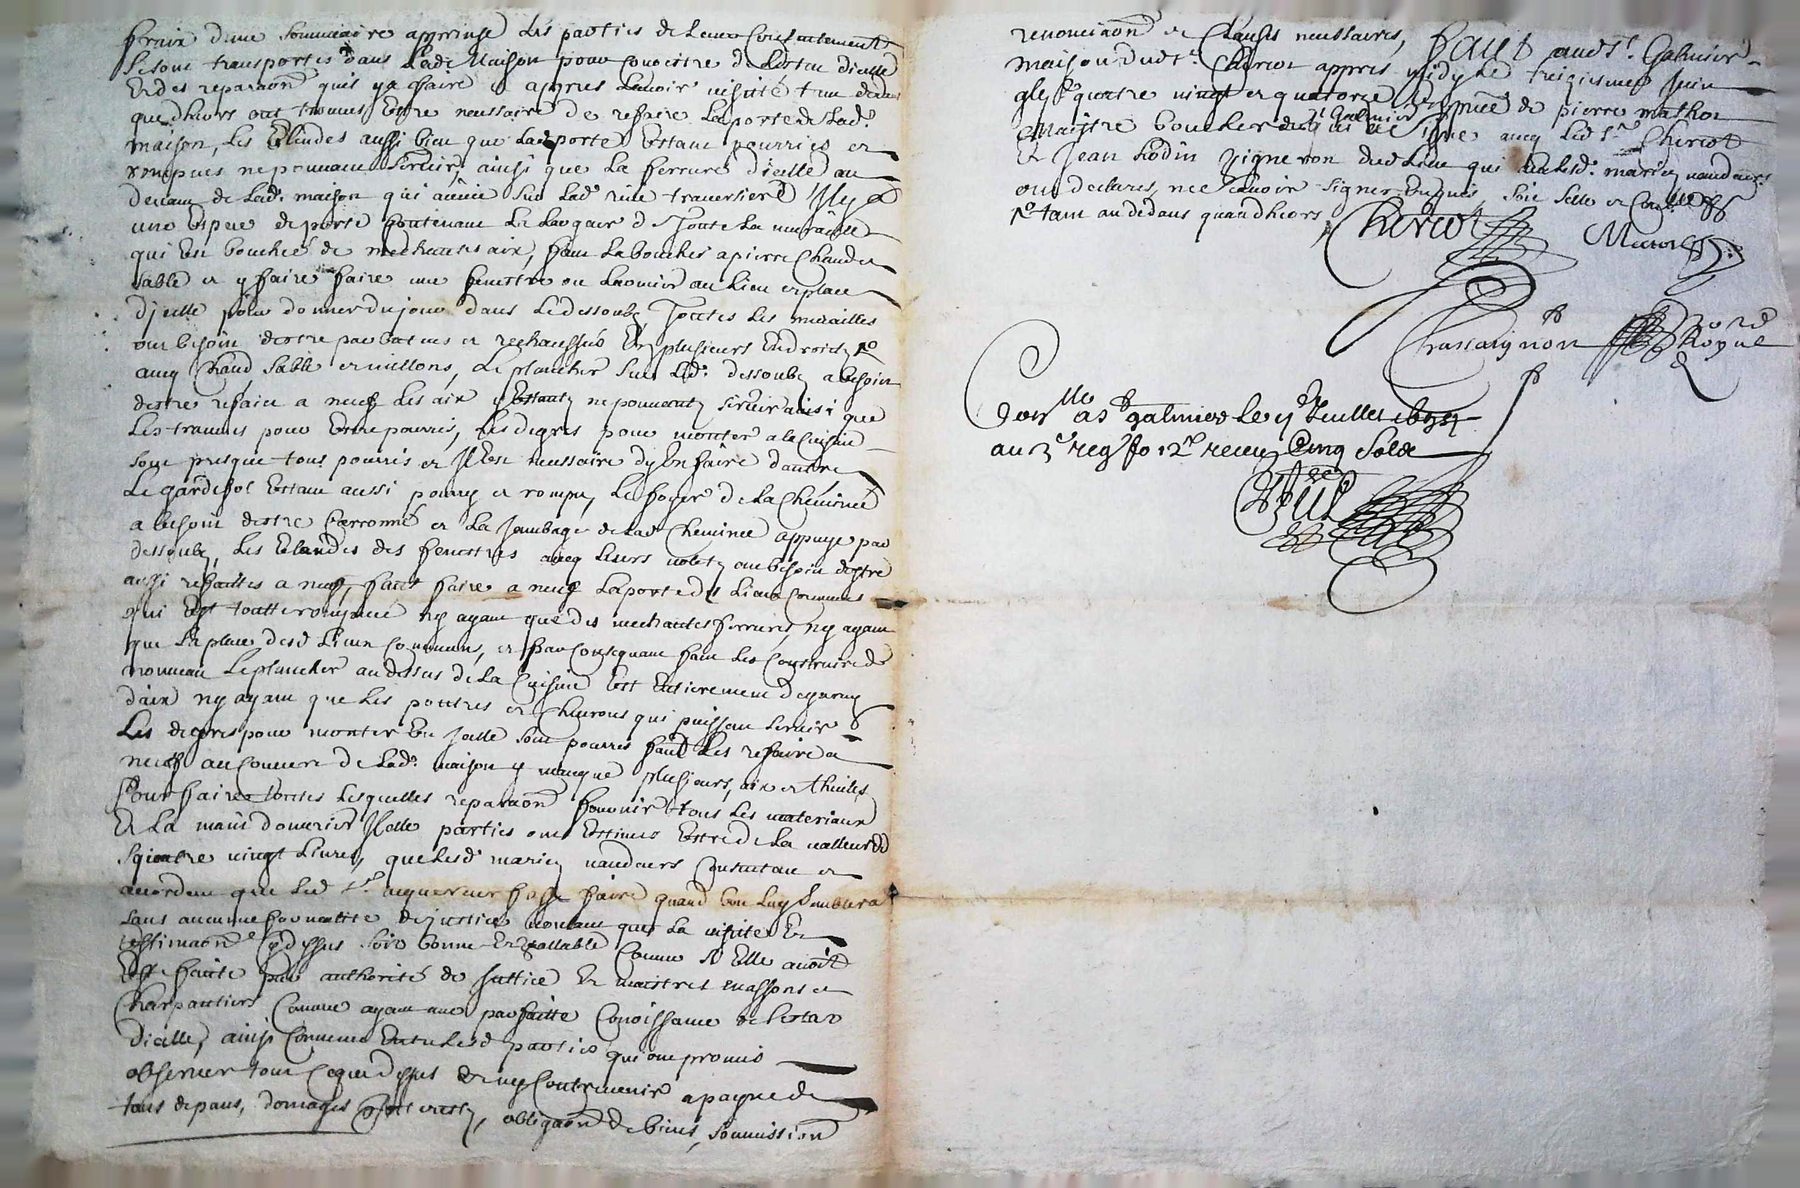 frais d'une sommaire apprinse les parties de leur consentement
se sont transportés dans lade maison pour conoistre de lestat dicelle
et des reparaõns quil y a a faire et appres lavoir visitté tant dedans
que dhiors ont trouvés estre neussaire de refaire la porte de lad.
maison, les elindes aussi bien que lad porte estant pourries et
rompues ne pouvant servir, ainsi que la ferrure dicelle au
devant de lad. maison qui avise sur lad. rue traversiere Il y a
une espece de porte contenant la largeur de toute la muraille
qui est bouchee de mechantes aix, faut la boucher a pierre chaud et
sable et y faire faire une fenestre ou larmier au lieu et place
dicelle pour donner du jour dans le dessoubz Touttes les murailles
ont besoin destre rebatues et rechaussés en plusieurs endroitz
avec chaud sable et moillons, le plancher sur led. dessoubz a besoin
destre refaict a neuf les aix estantz ne pouvantz servir ainsi que
les travures pour estre pourries, les degres pour monter a la cuisine
sont presque tous pourris et Il est neussaire dy en faire dautre
le gardefol estant aussi pourry et rompu, le foyer de la cheminee
a besoin destre carronné et la jambage de lad cheminee appuye par
dessoubz, les elandes des fenestres avec leurs voletz ont besoin destre
aussi refaittes a neuf, faut faire a neuf la porte des lieux communs
qui est toutte rompue ny ayant que des mechantes ferrures, ny ayant
que la place desd lieux communs, et par consequant faut les construire de
nouveau le plancher au dessus de la cuisine est entierement degarny
daix ny ayant que les pouttres et chevrons qui puissent servir
Les degres pour monter en icelle sont pourris faut les refaire a
neuf au couvert de lad. maison y manque plusieurs aix et thuiles
Pour faire touttes lesquelles reparaõns fournir tous les materiaux
et la main douvrier Icelles parties ont estimés estre de la valleur de
quatre vingt livres, que lesd mariez vandeurs consentent et
acordent que led sr. acquereur fasse faire quand bon luy semblera
sans aucune formalitte de justice voulant que la visitte et
estimaõn cy dessus soit bonne et vallable comme si elle avoit
esté faitte par authorité de justice et maistres massons et
charpantiers comme ayant une parfaitte conoissance de lestat
dicelle, ainsi convenu entre lesd parties qui ont promis
observer tout ce que dessus et ny contrevenir a payne de
tous depans, domages et interestz, obligaõn de biens, soumission
renonciaõn et clauses neussaires, fait audt. Galmier
maison dudt. Cheriot appres midy le treiziesme juin
gbjc quatre vingt et quatorze en presance de pierre mathon
maistre boucher dud st Galmier qui a signe avec led sr Cheriot
et Jean Rodin vigneron dud lieu qui avec lesd. mariez vandeurs
ont declares ne scavoir signer enquis, soit selle et controllé
estant au dedans quand hiors
Cheriot
Chassaignon
Royal
Coner.lle a St galmier le Juillet 1694
au 3e reg. fo 12 receu Cinq Solz